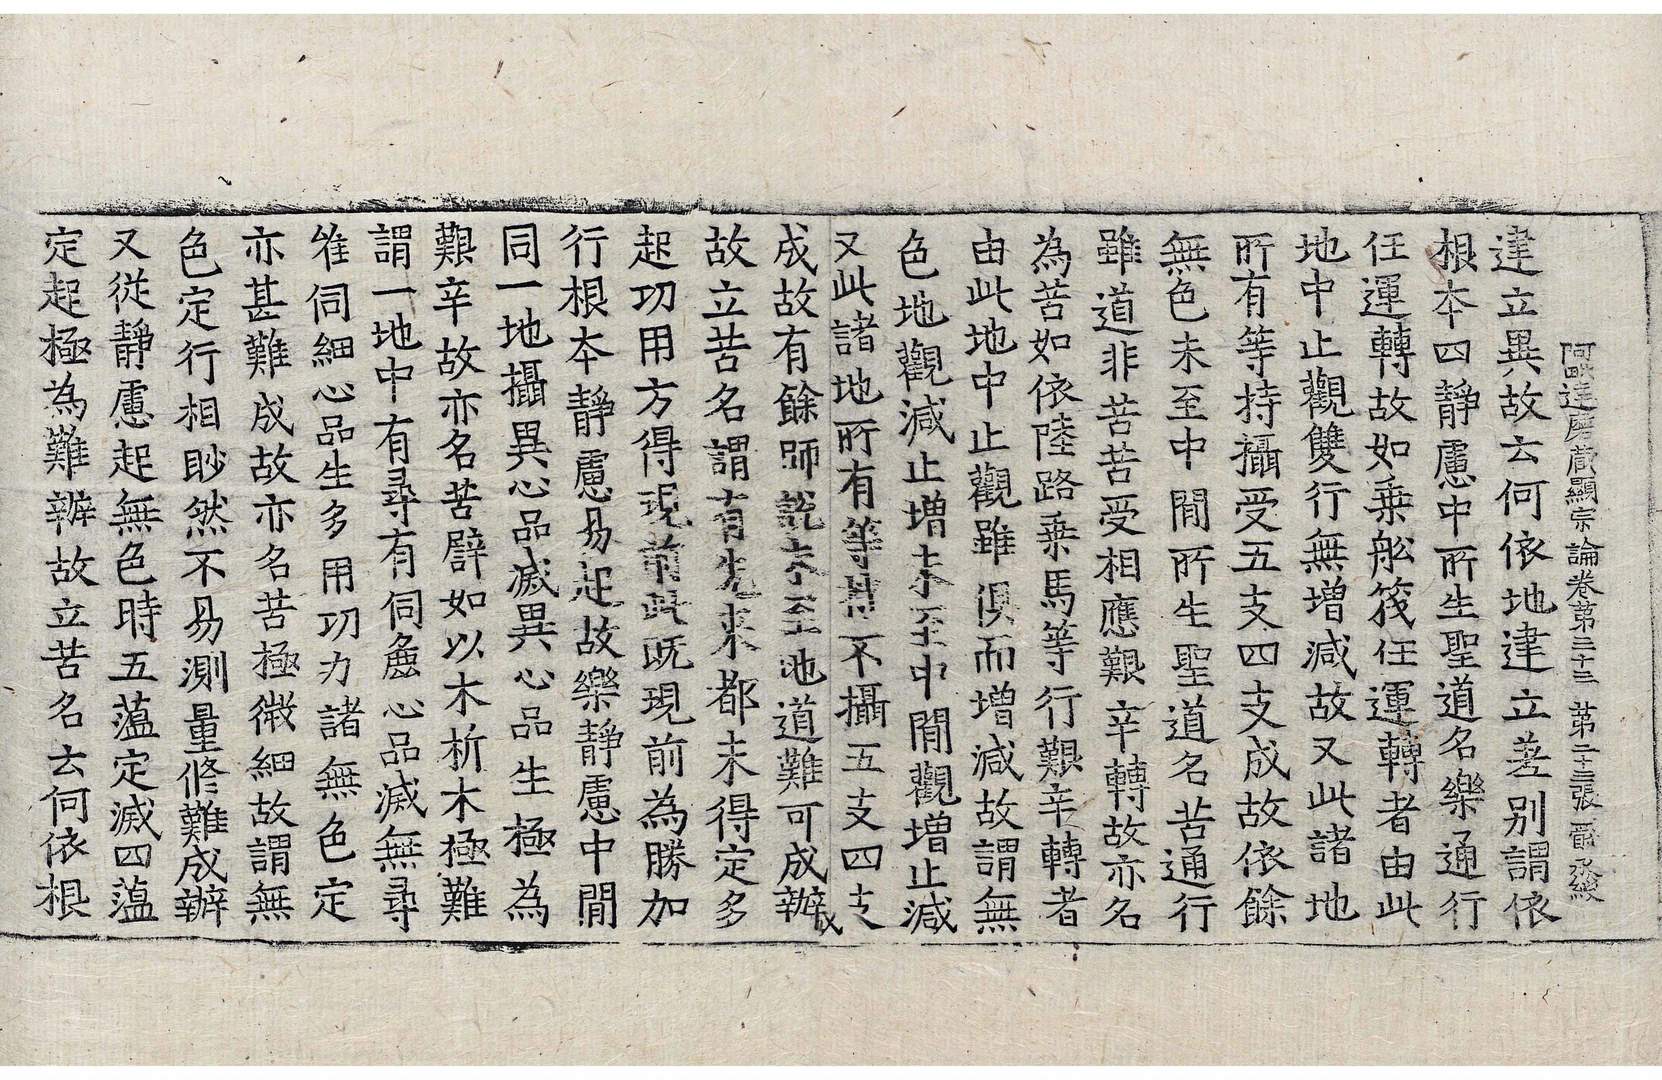 阿毗達磨蔵顯宗論卷苐三十三 苐二十二張
建立異故云何依地建立差別謂依
根本四靜慮中所生聖道名樂通行
任運轉故如乗舩筏任運轉者由此
地中止觀雙行無增減故又此諸地
所有等持攝受五支四支成故依餘
無色未至中閒所生聖道名苦通行
雖道非苦苦受相應艱辛轉故亦名
為苦如依陸路乗馬等行艱辛轉者
由此地中止觀雖俱而增減故謂無
色地觀減止增未至中閒觀增止減
又此諸地所有等持不攝五支四支
成故有餘師說未至地道難可成辦
故立苦名謂有先來都未得定多
起功用方得現前此既現前為勝加
行根本靜慮易起故樂靜慮中閒
同一地攝異心品滅異心品生極為
艱辛故亦名苦譬如以木析木極難
謂一地中有尋有伺麁心品滅無尋
唯伺細心品生多用功力諸無色定
亦甚難成故亦名苦極微細故謂無
色定行相眇然不易測量修難成辦
又從靜慮起無色時五蘊定滅四蘊
定起極為難辦故立苦名云何依根